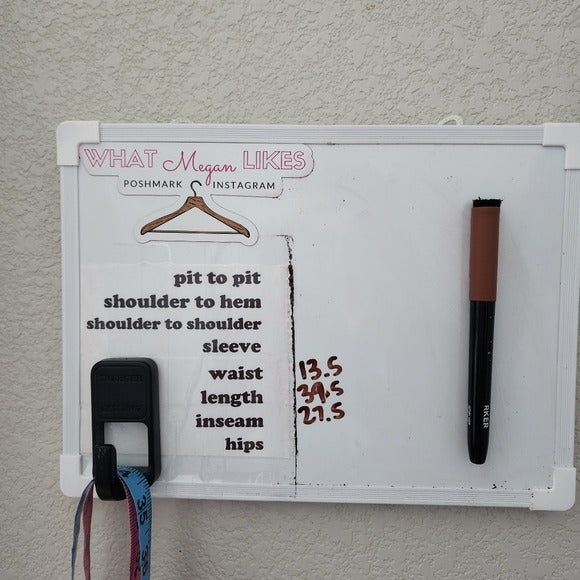 WHAT Megan LIKES
POSHMARK INSTAGRAM
pit to pit
shoulder to hem
shoulder to shoulder
sleeve
waist 13.5
length 39.5
inseam 27.5
hips
RKER
35